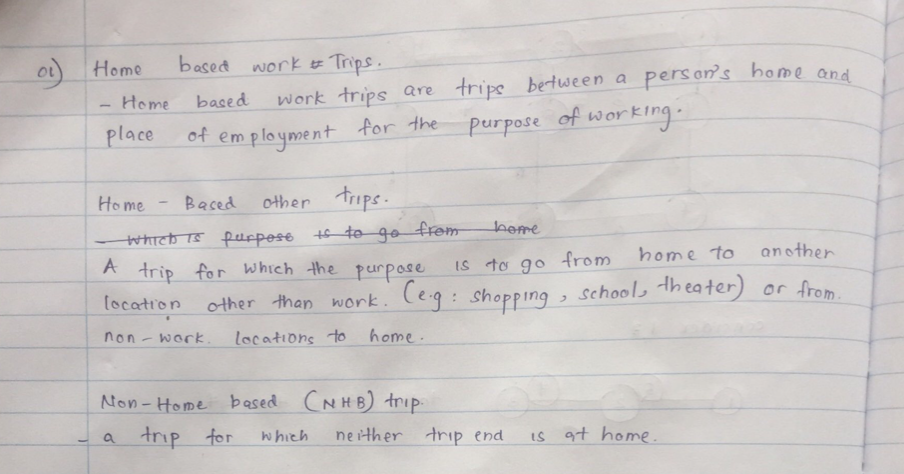 01) Home based work Trips.
- Home based work trips are trips between a person's home and
place of employment for the purpose of working.
Home - Based other trips.
- which is purpose is to go from home
A trip for which the purpose is to go from home to another
location other than work. (e.g : shopping, school, theater) or from.
non - work. locations to home.
Non - Home based (NHB) trip.
- a trip for which neither trip end is at home.